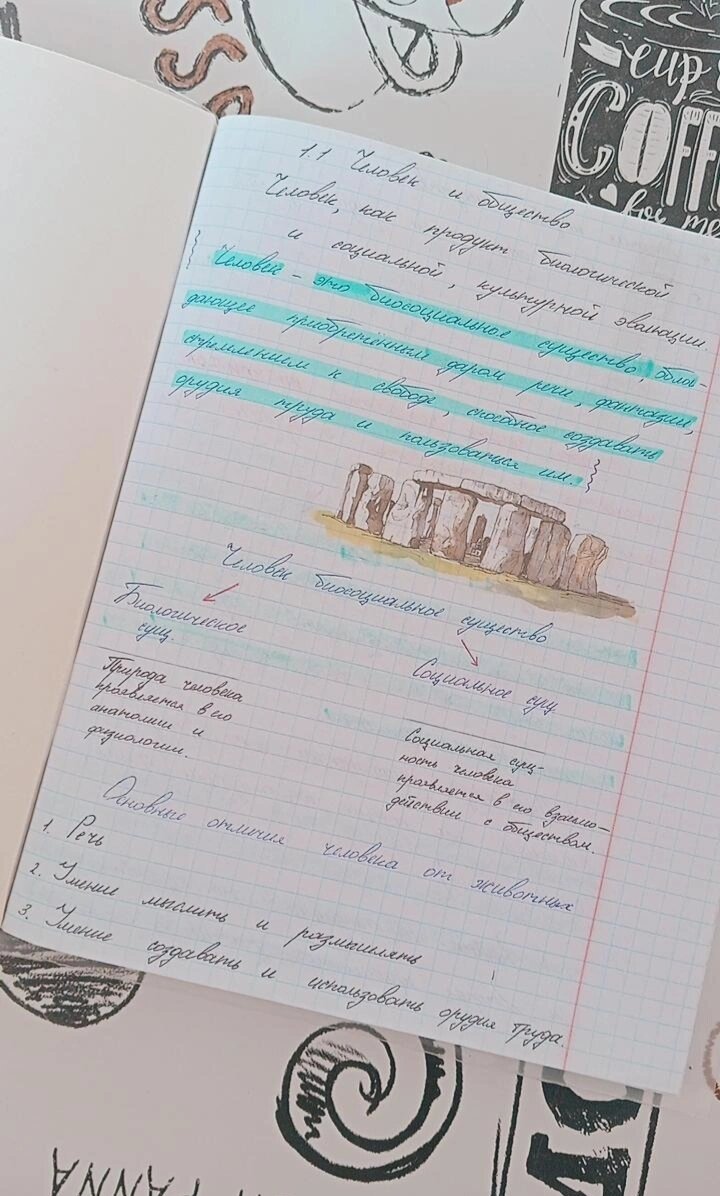 cup
COFF
for me
1.1 Человек и общество
Человек, как продукт биологической
и социальной, культурной эволюции.
{ Человек - это биосоциальное существо, обла-
дающее приобретённым даром речи, фантазии,
стремлением к свободе, способное создавать
орудия труда и пользоваться им. }
Человек биосоциальное существо
Биологическое
сущ.
Социальное сущ
Природа человека
проявляется в его
анатомии и
физиологии.
Социальная сущ-
ность человека
проявляется в его взаимо-
действии с обществом.
Основные отличия человека от животных
1. Речь
2. Умение мыслить и размышлять
3. Умение создавать и использовать орудия труда.